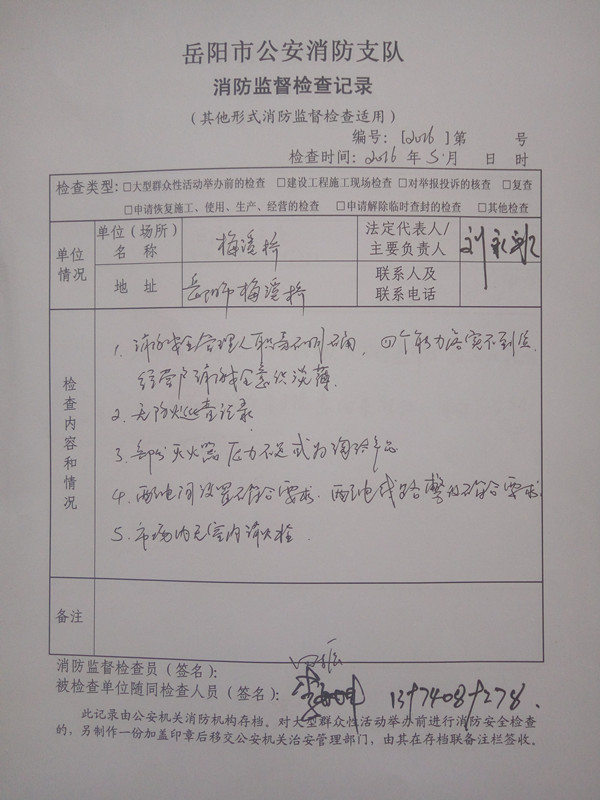 岳阳市公安消防支队
消防监督检查记录
（其他形式消防监督检查适用）
编号：[2016]第 号
检查时间：2016 年 5 月 日 时
检查类型：□大型群众性活动举办前的检查 □建设工程施工现场检查 □对举报投诉的核查 □复查
□申请恢复施工、使用、生产、经营的检查 □申请解除临时查封的检查 □其他检查
单位情况
单位（场所）名称 梅溪桥
法定代表人/主要负责人
地址 岳阳市梅溪桥
联系人及联系电话
检查内容和情况
1. 消防安全管理人职责不明确，四个能力落实不到位.
经营户消防安全意识淡薄.
2. 无防火巡查记录
3. 部分灭火器压力不足或为淘汰产品
4. 配电间设置不符合要求. 配电线路敷设不符合要求
5. 市场内无室内消火栓.
备注
消防监督检查员（签名）：
被检查单位随同检查人员（签名）：
此记录由公安机关消防机构存档。对大型群众性活动举办前进行消防安全检查
的，另制作一份加盖印章后移交公安机关治安管理部门，由其在存档联备注栏签收。